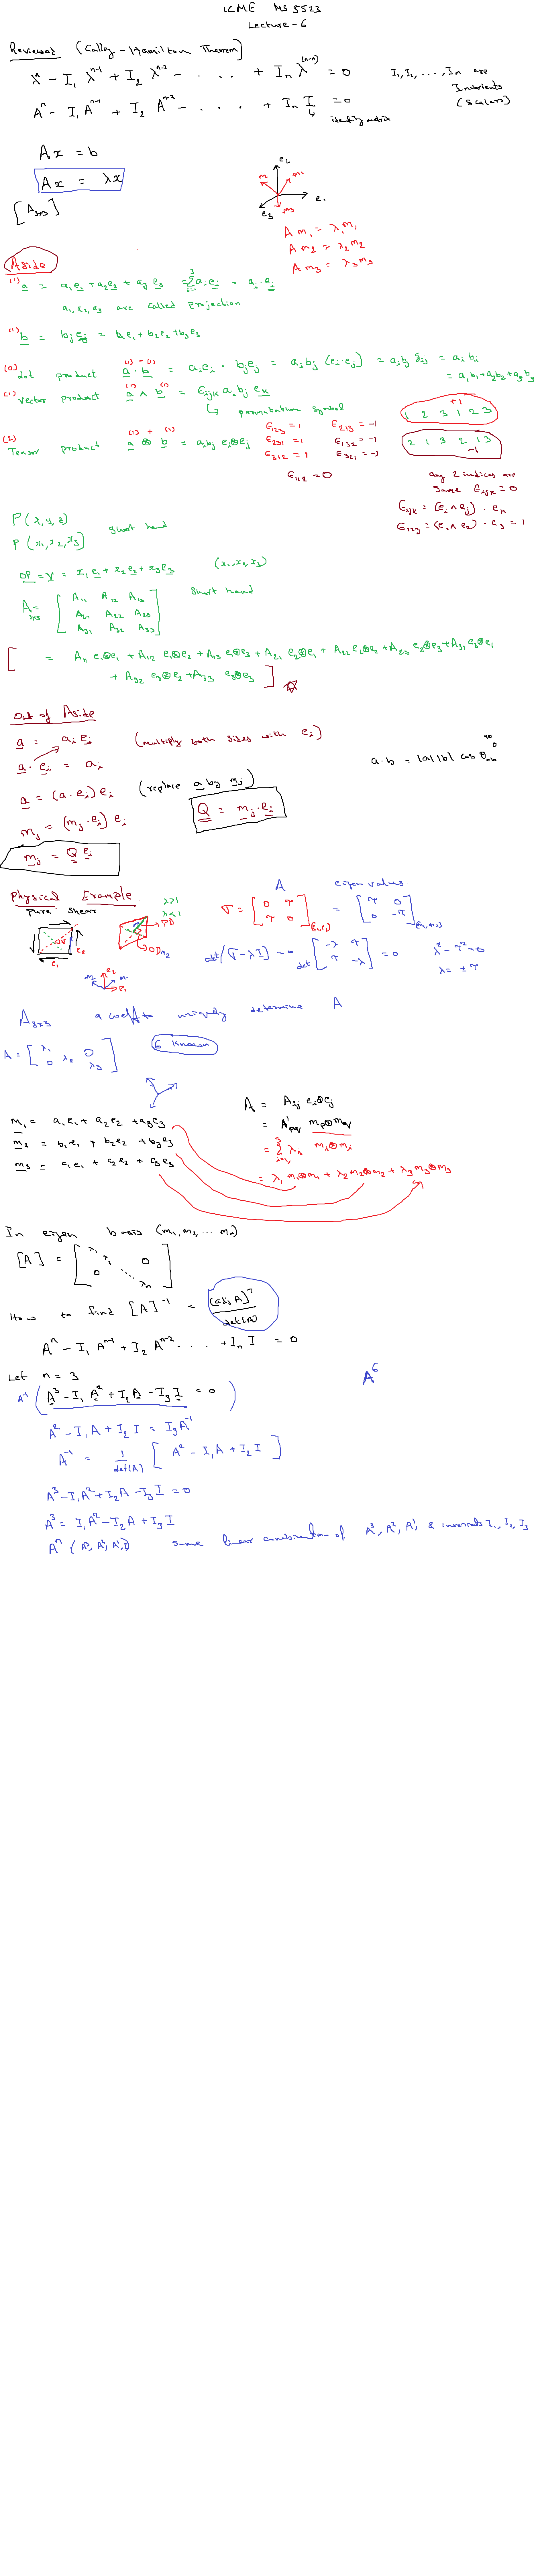 ICME MS 5523
Lecture-6
Reviewed (Calley-Hamilton Theorem)
λⁿ - I₁ λⁿ⁻¹ + I₂ λⁿ⁻² - . . . + Iₙ λ⁽ⁿ⁻ⁿ⁾ = 0 I₁, I₂, ..., Iₙ are
Invarients
(Scalars)
Aⁿ - I₁ Aⁿ⁻¹ + I₂ Aⁿ⁻² - . . . . + Iₙ I = 0
identity matrix
Ax = b
Ax = λx
[A₃ₓ₃]
e₂
m₂ m₁
e₁
e₃ m₃
A m₁ = λ₁m₁
A m₂ = λ₂m₂
A m₃ = λ₃m₃
Aside
(1) a = a₁e₁ + a₂e₂ + a₃e₃ = Σ aᵢeᵢ = aᵢ.eᵢ
a₁, a₂, a₃ are called projection
(1) b = bⱼeⱼ = b₁e₁ + b₂e₂ + b₃e₃
(0) dot product a · b = aᵢeᵢ · bⱼeⱼ = aᵢbⱼ (eᵢ·eⱼ) = aᵢbⱼ δᵢⱼ = aᵢbᵢ
= a₁b₁ + a₂b₂ + a₃b₃
(1) Vector product a ∧ b = ϵᵢⱼₖ aᵢbⱼ eₖ
permutation symbol
+1
1 2 3 1 2 3
(2) Tensor product a ⊗ b = aᵢbⱼ eᵢ⊗eⱼ
ϵ₁₂₃ = 1 ϵ₂₁₃ = -1
ϵ₂₃₁ = 1 ϵ₁₃₂ = -1
ϵ₃₁₂ = 1 ϵ₃₂₁ = -1
2 1 3 2 1 3
-1
ϵ₁₁₂ = 0
any 2 indices are
same ϵᵢⱼₖ = 0
ϵᵢⱼₖ = (eᵢ∧eⱼ) · eₖ
ϵ₁₂₃ = (e₁∧e₂) · e₃ = 1
P(x, y, z)
short hand
P(x₁, x₂, x₃)
OP = r = x₁e₁ + x₂e₂ + x₃e₃ (x₁, x₂, x₃)
A₃ₓ₃ = [ A₁₁ A₁₂ A₁₃ short hand
A₂₁ A₂₂ A₂₃
A₃₁ A₃₂ A₃₃ ]
[ = A₁₁ e₁⊗e₁ + A₁₂ e₁⊗e₂ + A₁₃ e₁⊗e₃ + A₂₁ e₂⊗e₁ + A₂₂ e₂⊗e₂ + A₂₃ e₂⊗e₃ + A₃₁ e₃⊗e₁
+ A₃₂ e₃⊗e₂ + A₃₃ e₃⊗e₃ ]
Out of Aside
a = aᵢeᵢ (multiply both sides with eᵢ)
a · eᵢ = aᵢ
a·b = |a||b| cos θₐᵦ
a = (a·eᵢ)eᵢ (replace a by mⱼ)
mⱼ = (mⱼ·eᵢ) eᵢ
Q = mⱼ·eᵢ
mⱼ = Q eᵢ
Physical Example
Pure Shear
λ>1
λ<1
PD
e₂
e₁
A eigen values
σ = [ 0 τ
τ 0 ](e₁,e₂) = [ τ 0
0 -τ ](m₁,m₂)
det(σ-λI) = 0 det [ -λ τ
τ -λ ] = 0 λ² - τ² = 0
λ = ± τ
A₃ₓ₃ 9 coeff to uniquely determine A
A = [ λ₁ 0
0 λ₂
λ₃ ]
6 known
m₁ = a₁e₁ + a₂e₂ + a₃e₃
m₂ = b₁e₁ + b₂e₂ + b₃e₃
m₃ = c₁e₁ + c₂e₂ + c₃e₃
A = Aᵢⱼ eᵢ⊗eⱼ
= A'pq mp⊗mq
= Σ λᵢ mᵢ⊗mᵢ
= λ₁ m₁⊗m₁ + λ₂ m₂⊗m₂ + λ₃ m₃⊗m₃
In eigen basis (m₁, m₂, ... mₙ)
[A] = [ λ₁ λ₂ 0
0 ⋱ λₙ ]
How to find [A]⁻¹ = (adj A)ᵀ / det(A)
Aⁿ - I₁ Aⁿ⁻¹ + I₂ Aⁿ⁻² . . . . + Iₙ I = 0
Let n = 3
A⁶
A⁻¹ ( A³ - I₁A² + I₂A - I₃I = 0 )
A² - I₁A + I₂I = I₃A⁻¹
A⁻¹ = 1/det(A) [ A² - I₁A + I₂I ]
A³ - I₁A² + I₂A - I₃I = 0
A³ = I₁A² - I₂A + I₃I
Aⁿ (A³, A², A¹, I) some linear combination of A³, A², A¹, & invariants I₁, I₂, I₃